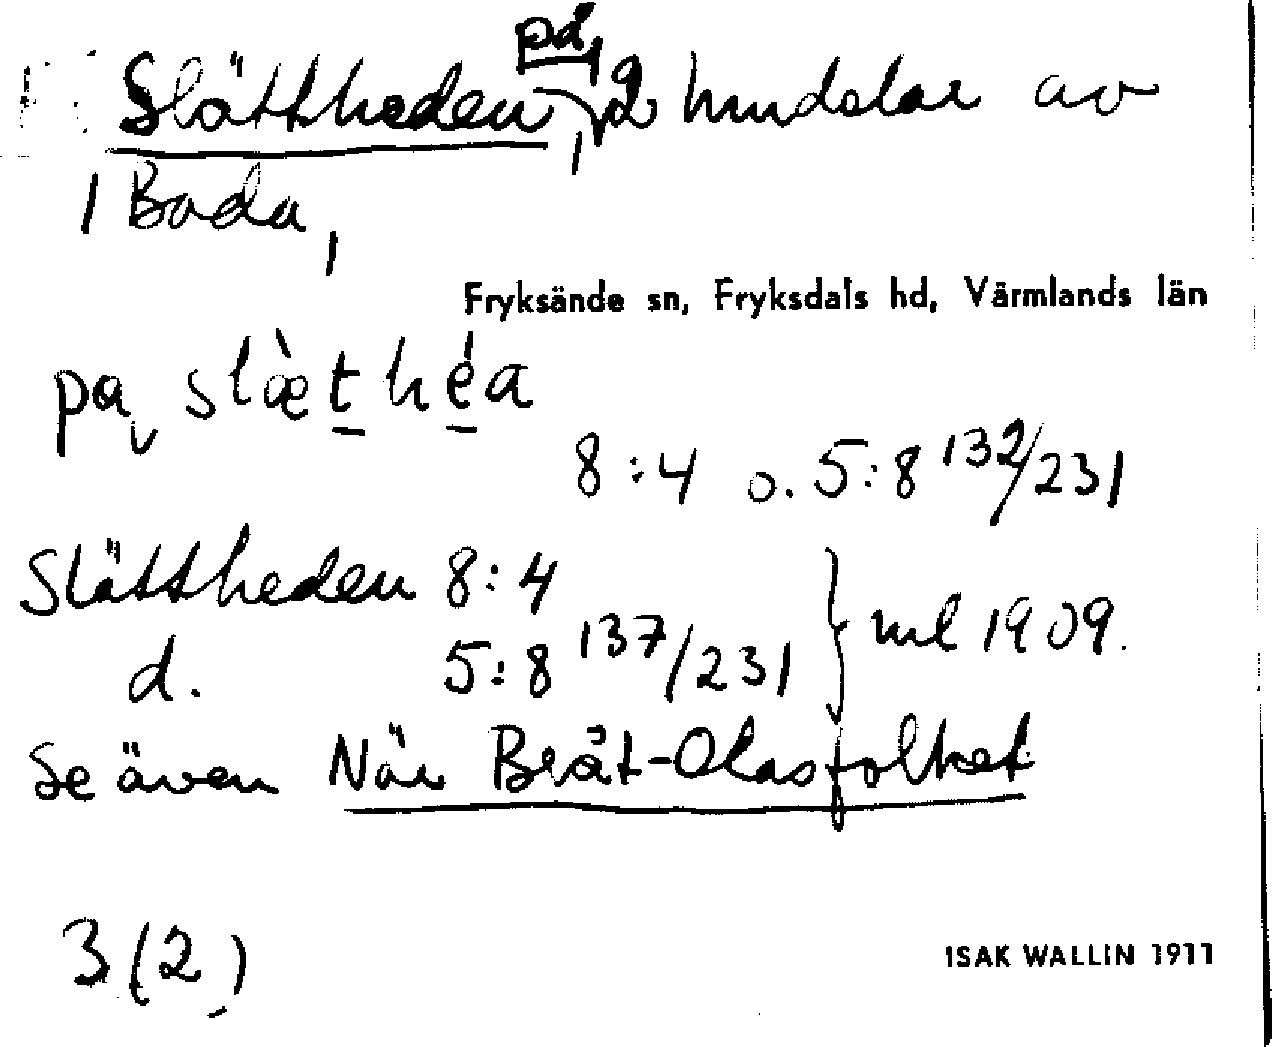 Slättheden, på, 2 hmdelar av
/ Bada,
Fryksände sn, Fryksdals hd, Värmlands län
pa slæ̀theá
8:4 o. 5:8 132/231
Slättheden 8:4
d. 5:8 137/231 } ml 1909.
Se även När Bråt-Olasfolket
3 (2)
ISAK WALLIN 1911